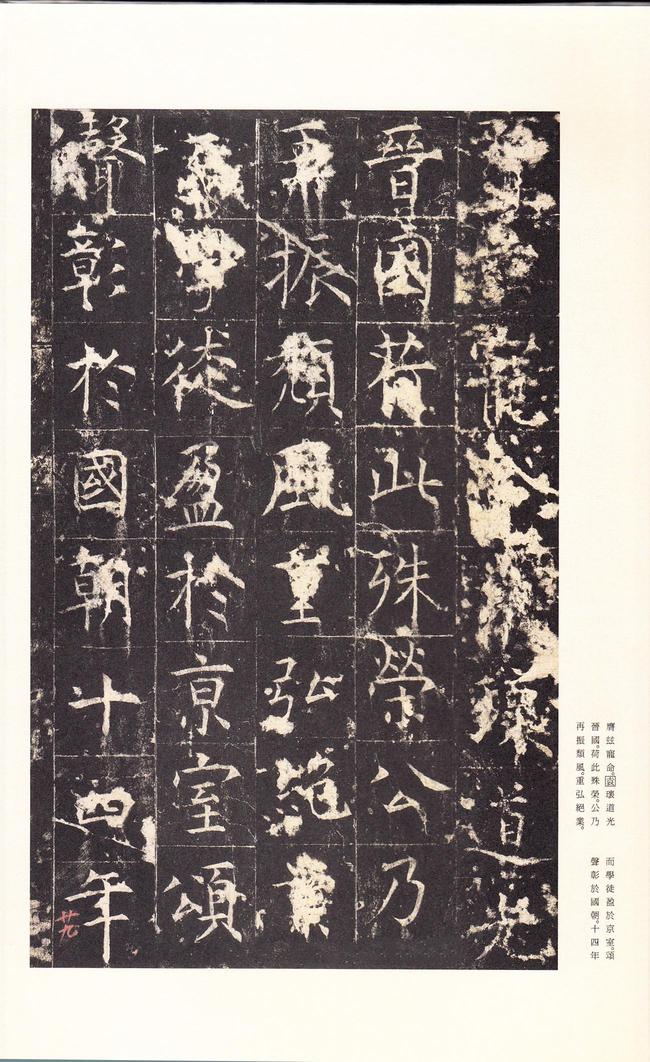 膺茲寵命瓌道光
晉國荷此殊榮公乃
再振頽風重弘絕業
而學徒盈於京室頌
聲彰於國朝十四年
廿九
膺茲寵命。袁瓌道光
晉國。荷此殊榮。公乃
再振頽風。重弘絕業。
而學徒盈於京室。頌
聲彰於國朝。十四年